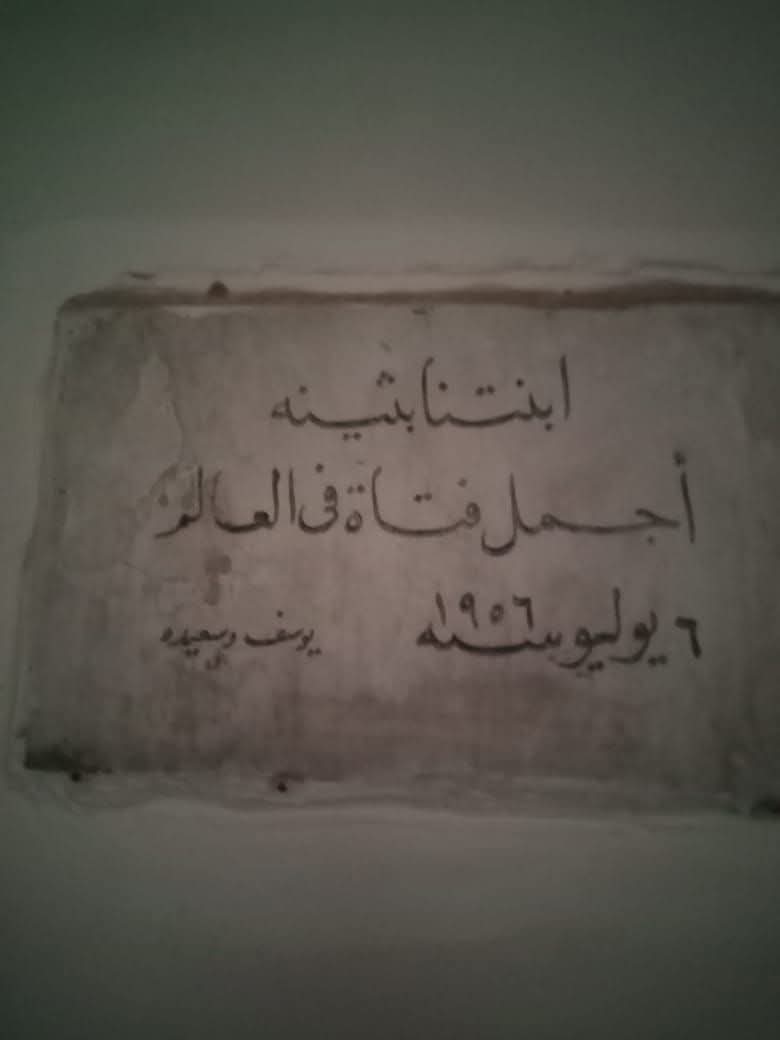 ابنتنا بثينه
أجمل فتاة فى العالم
٦ يوليو سنه ١٩٥٦ يوسف وسعيده